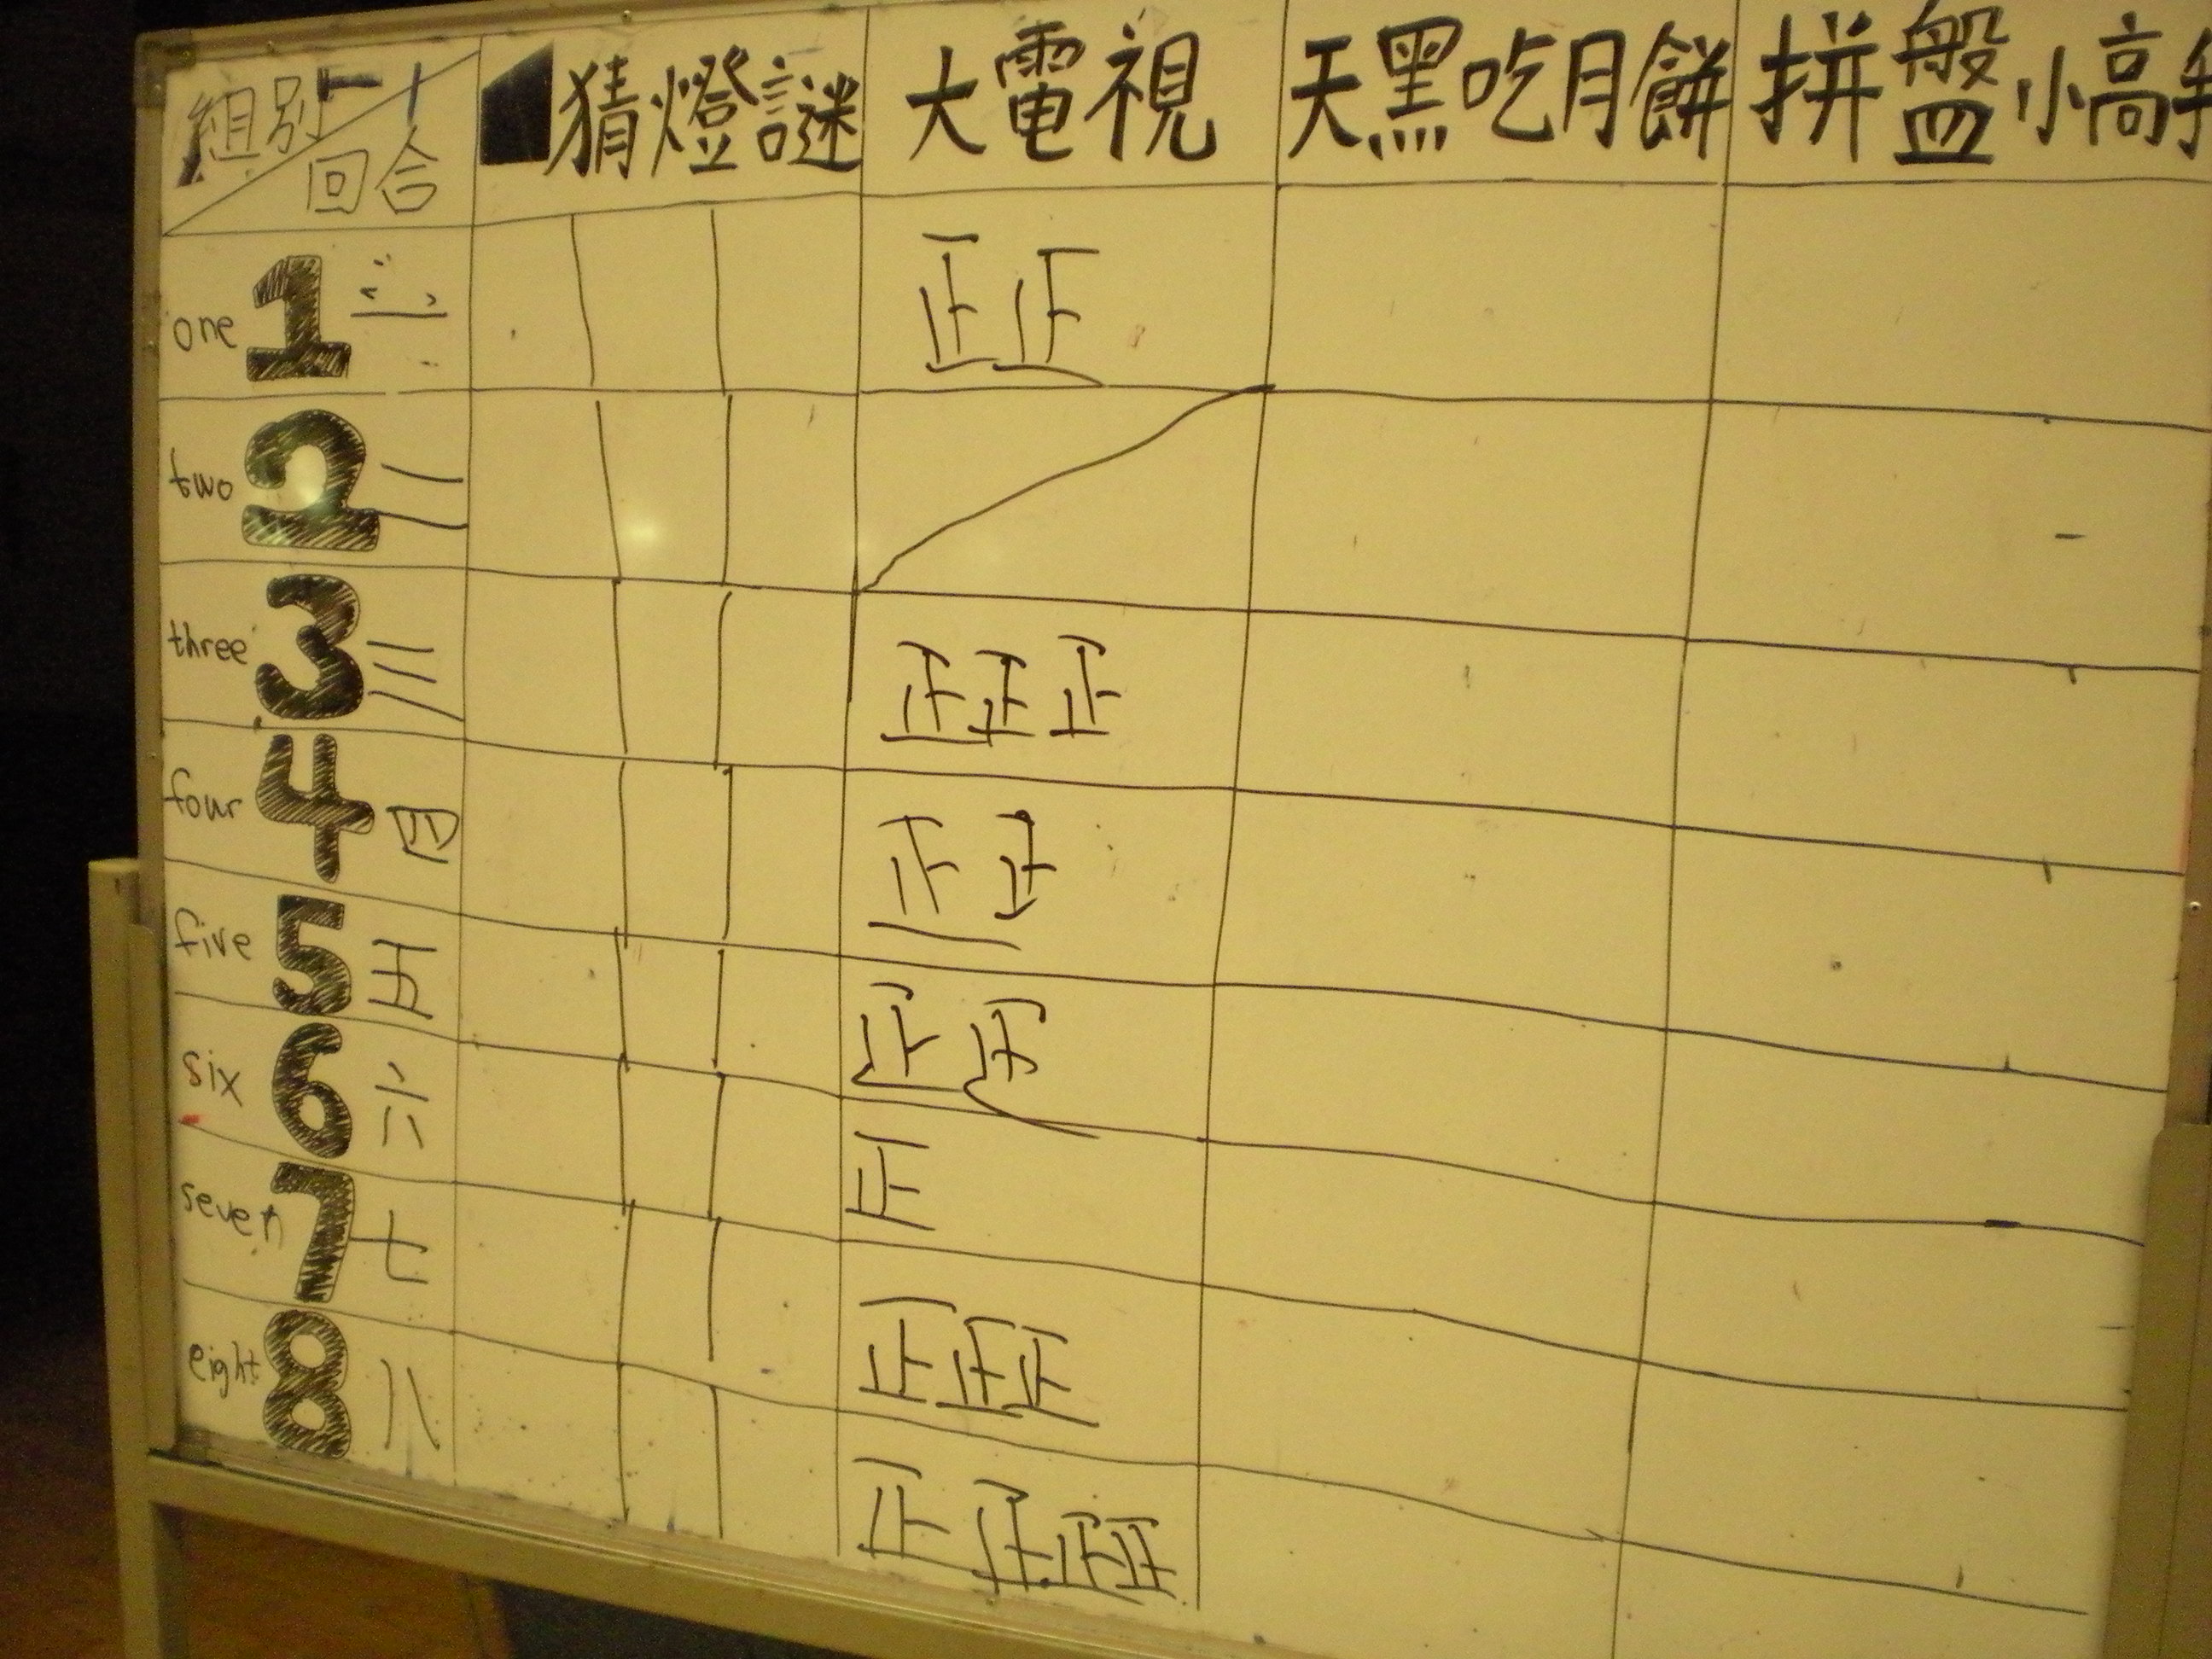 組別 猜燈謎 大電視 天黑吃月餅 拼盤小高手
回合
one 1 一 正正
two 2 二
three 3 三 正正正
four 4 四 正正
five 5 五 正正
six 6 六 正
seven 7 七 正正正
eight 8 八 正正正正